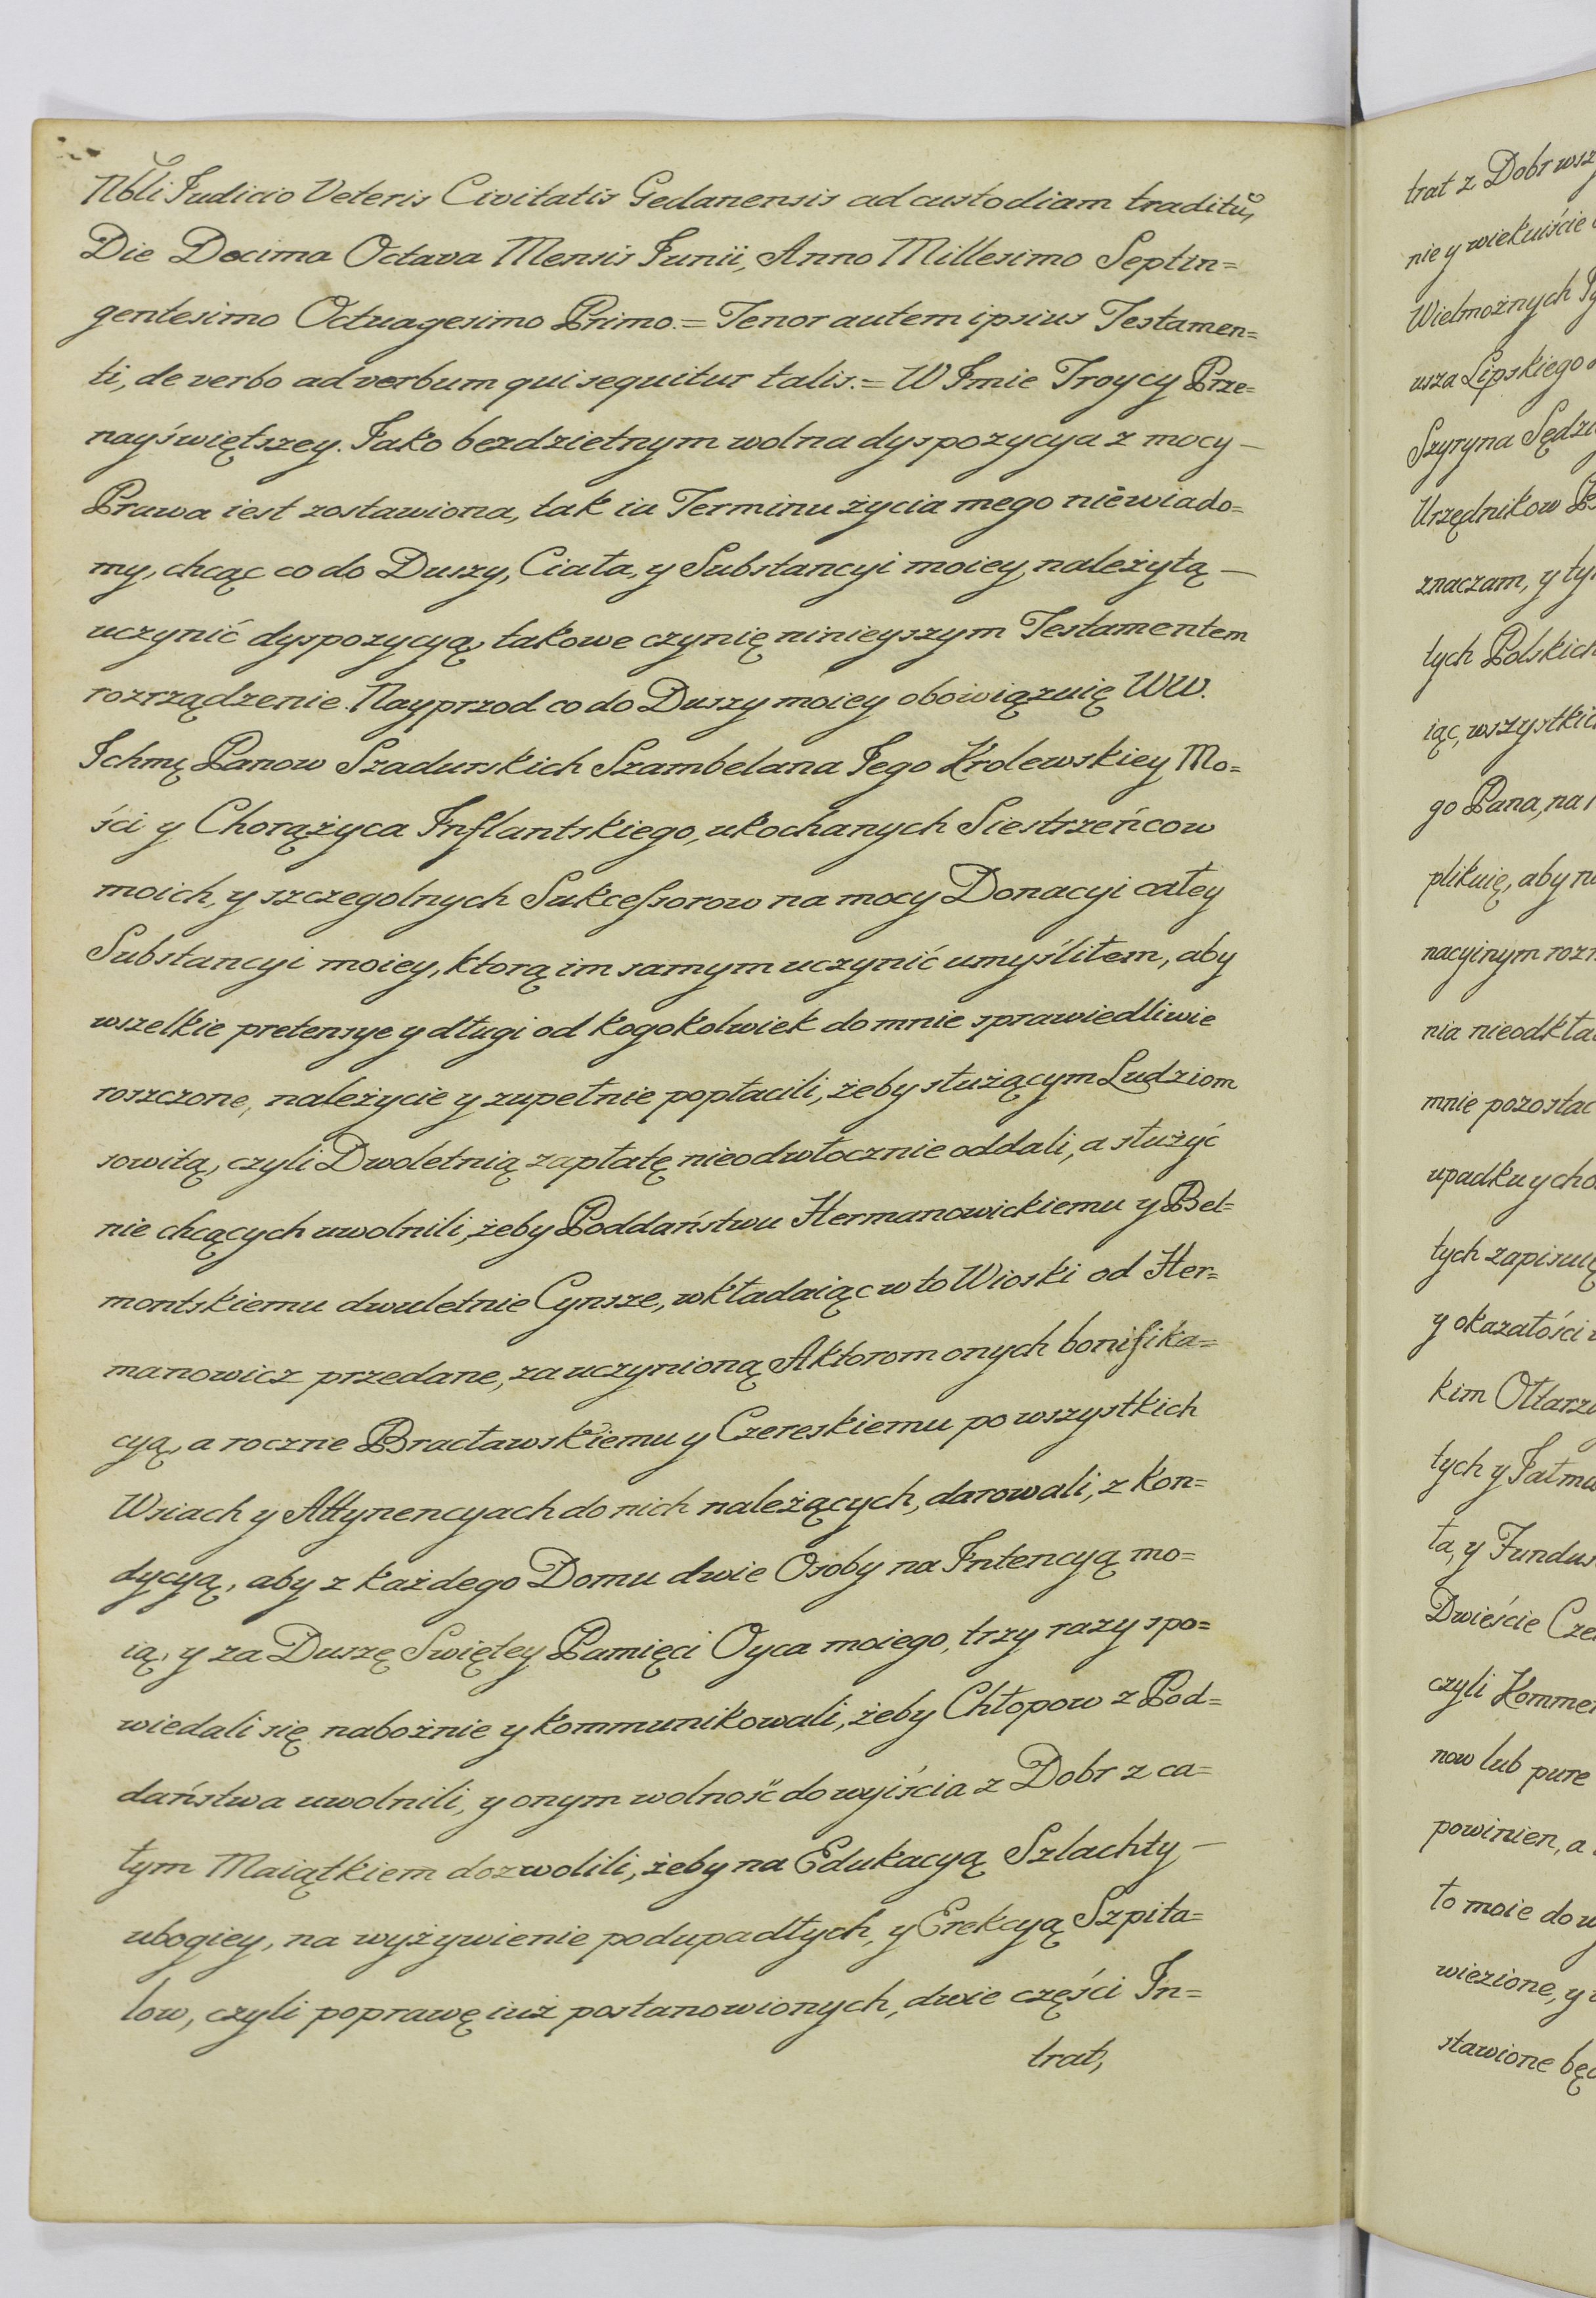 Nbli Judicio Veteris Civitatis Gedanensis ad custodiam traditũ,
Die Decima Octava Mensis Junii, Anno Millesimo Septin=
gentesimo Octuagesimo Primo. = Tenor autem ipsius Testamen=
ti, de verbo ad verbum qui sequitur talis. = W Imie Troycy Prze=
nayświętszey. Jako bezdzietnym wolna dyspozycya z mocy —
Prawa iest zostawiona, tak ia Terminu życia mego niewiado=
my, chcąc co do Duszy, Ciała, y Substancyi moiey, należytą —
uczynić dyspozycyą, takowe czynię ninieyszym Testamentem
rozrządzenie. Nayprzod co do Duszy moiey obowiązuię WW.
Ichmę Panow Szadurskich Szambelana Jego Krolewskiey Mo=
ści y Chorążyca Inflantskiego, ukochanych Siestrzeńcow
moich, y szczegolnych Sukcessorow na mocy Donacyi całey
Substancyi moiey, ktorą im samym uczynić umyśliłem, aby
wszelkie pretensye y długi od kogokolwiek do mnie sprawiedliwie
roszczone, należycie y zupełnie popłacili, żeby służącym Ludziom
sowitą, czyli Dwoletnią zapłatę nieodwłocznie oddali, a służyć
nie chcących uwolnili, żeby Poddaństwu Hermanowickiemu y Bel=
montskiemu dwuletnie Cynsze, wkładaiąc w to Wioski od Her=
manowicz przedane, za uczynioną Aktorom onych bonifika=
cyą, a roczne Bracławskiemu y Czereskiemu po wszystkich
Wsiach y Attynencyach do nich należących, darowali, z kon=
dycyą, aby z każdego Domu dwie Osoby na Intencyą mo=
ią, y za Duszę Swiętey Pamięci Oyca moiego, trzy razy spo=
wiedali się nabożnie y kommunikowali, żeby Chłopow z Pod=
daństwa uwolnili, y onym wolność do wyiścia z Dobr z ca=
łym Maiątkiem dozwolili, żeby na Edukacyą Szlachty —
ubogiey, na wyżywienie podupadłych, y Erekcyą Szpita=
low, czyli poprawę iuż postanowionych, dwie części In=
trat,
trat z Dobr wsz
nie y wiekuiście
Wielmożnych
usza Lipskiego
Szyryna Sędzi
Urzędnikow
znaczam, y ty
tych Polskich
iąc, wszystkic
go Pana, na
plikuię, aby n
nacyinym roz
nia nieodkła
mnie pozostac
upadku y cho
tych zapisuię
y okazałości
kim Ołtarz
tych y Jałmu
ta, y Fundus
Dwieście Cze
czyli Kommen
now lub pure
powinien, a
to moie do w
wiezione, y
stawione bę